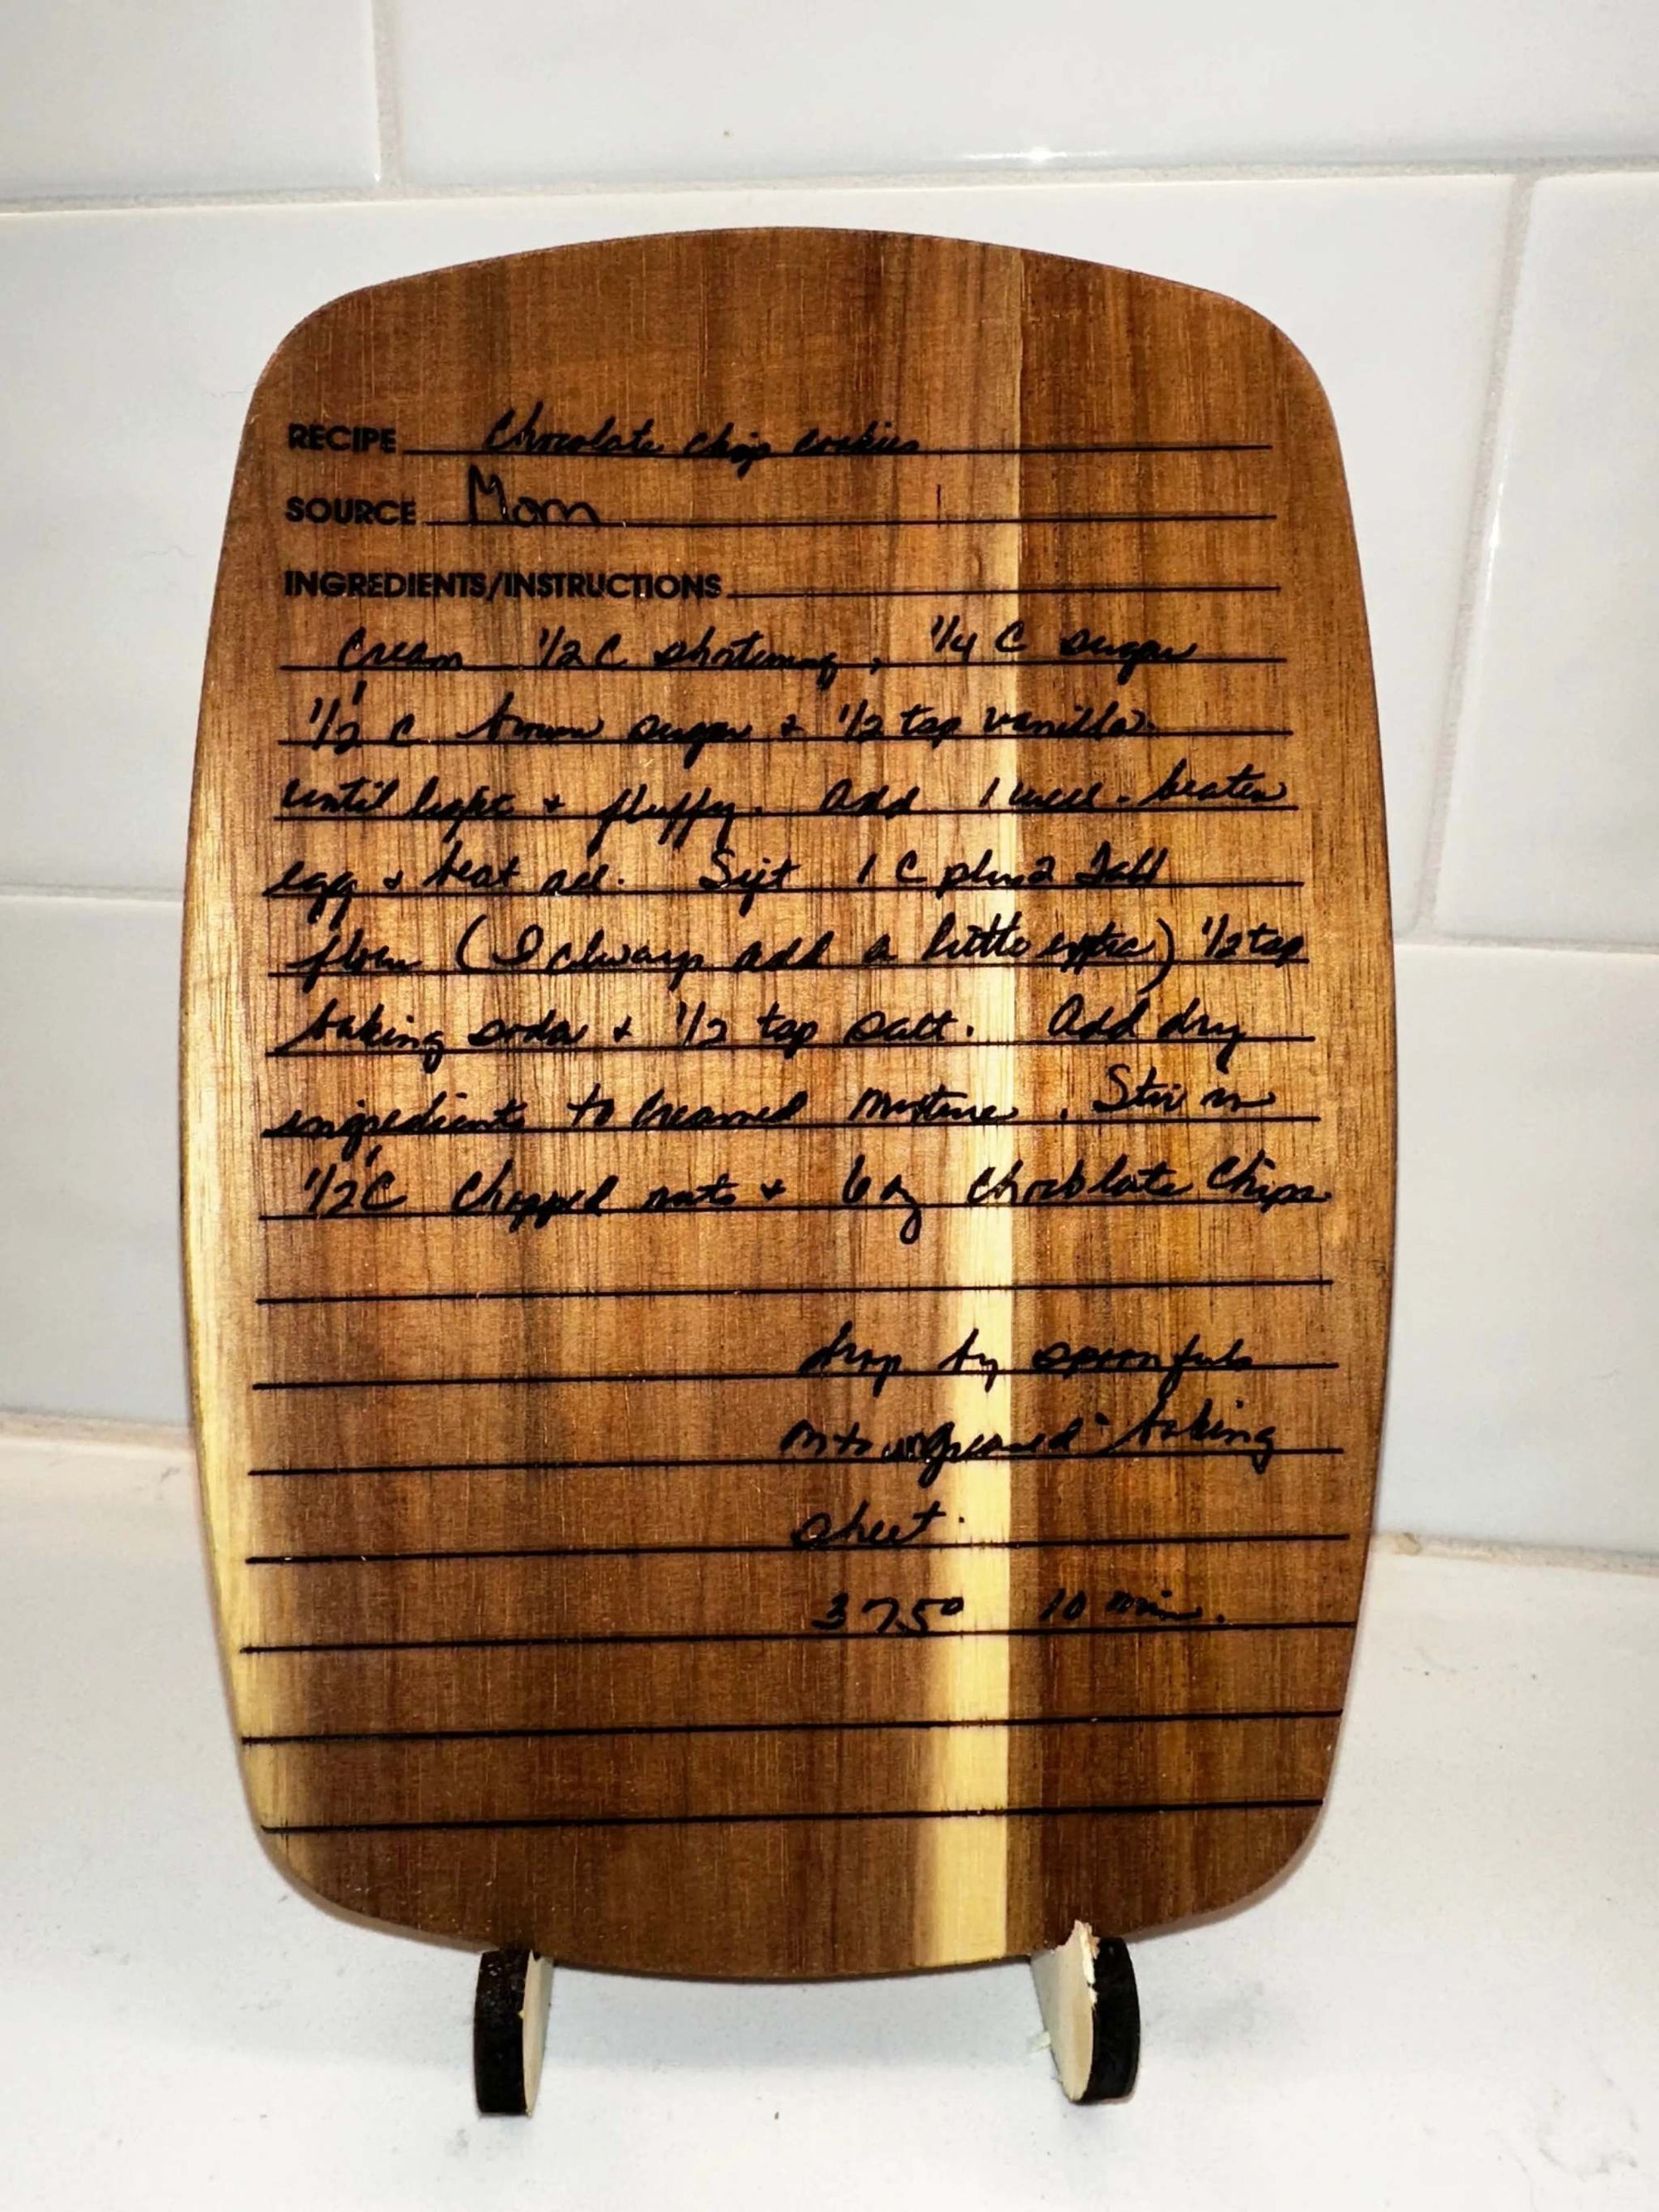 RECIPE Chocolate Chip cookies
SOURCE Mom
INGREDIENTS/INSTRUCTIONS
Cream 1/2 C shortening, 1/4 C sugar
1/2 C brown sugar + 1/2 tsp vanilla.
until light + fluffy. Add 1 well-beaten
egg + beat all. Sift 1 C plus 2 Tabl
flour (I always add a little extra) 1/2 tsp
baking soda + 1/2 tsp salt. Add dry
ingredients to creamed mixture. Stir in
1/2 C Chopped nuts + 6 oz Chocolate Chips
drop by spoonfuls
onto ungreased baking
sheet.
375° 10 min.